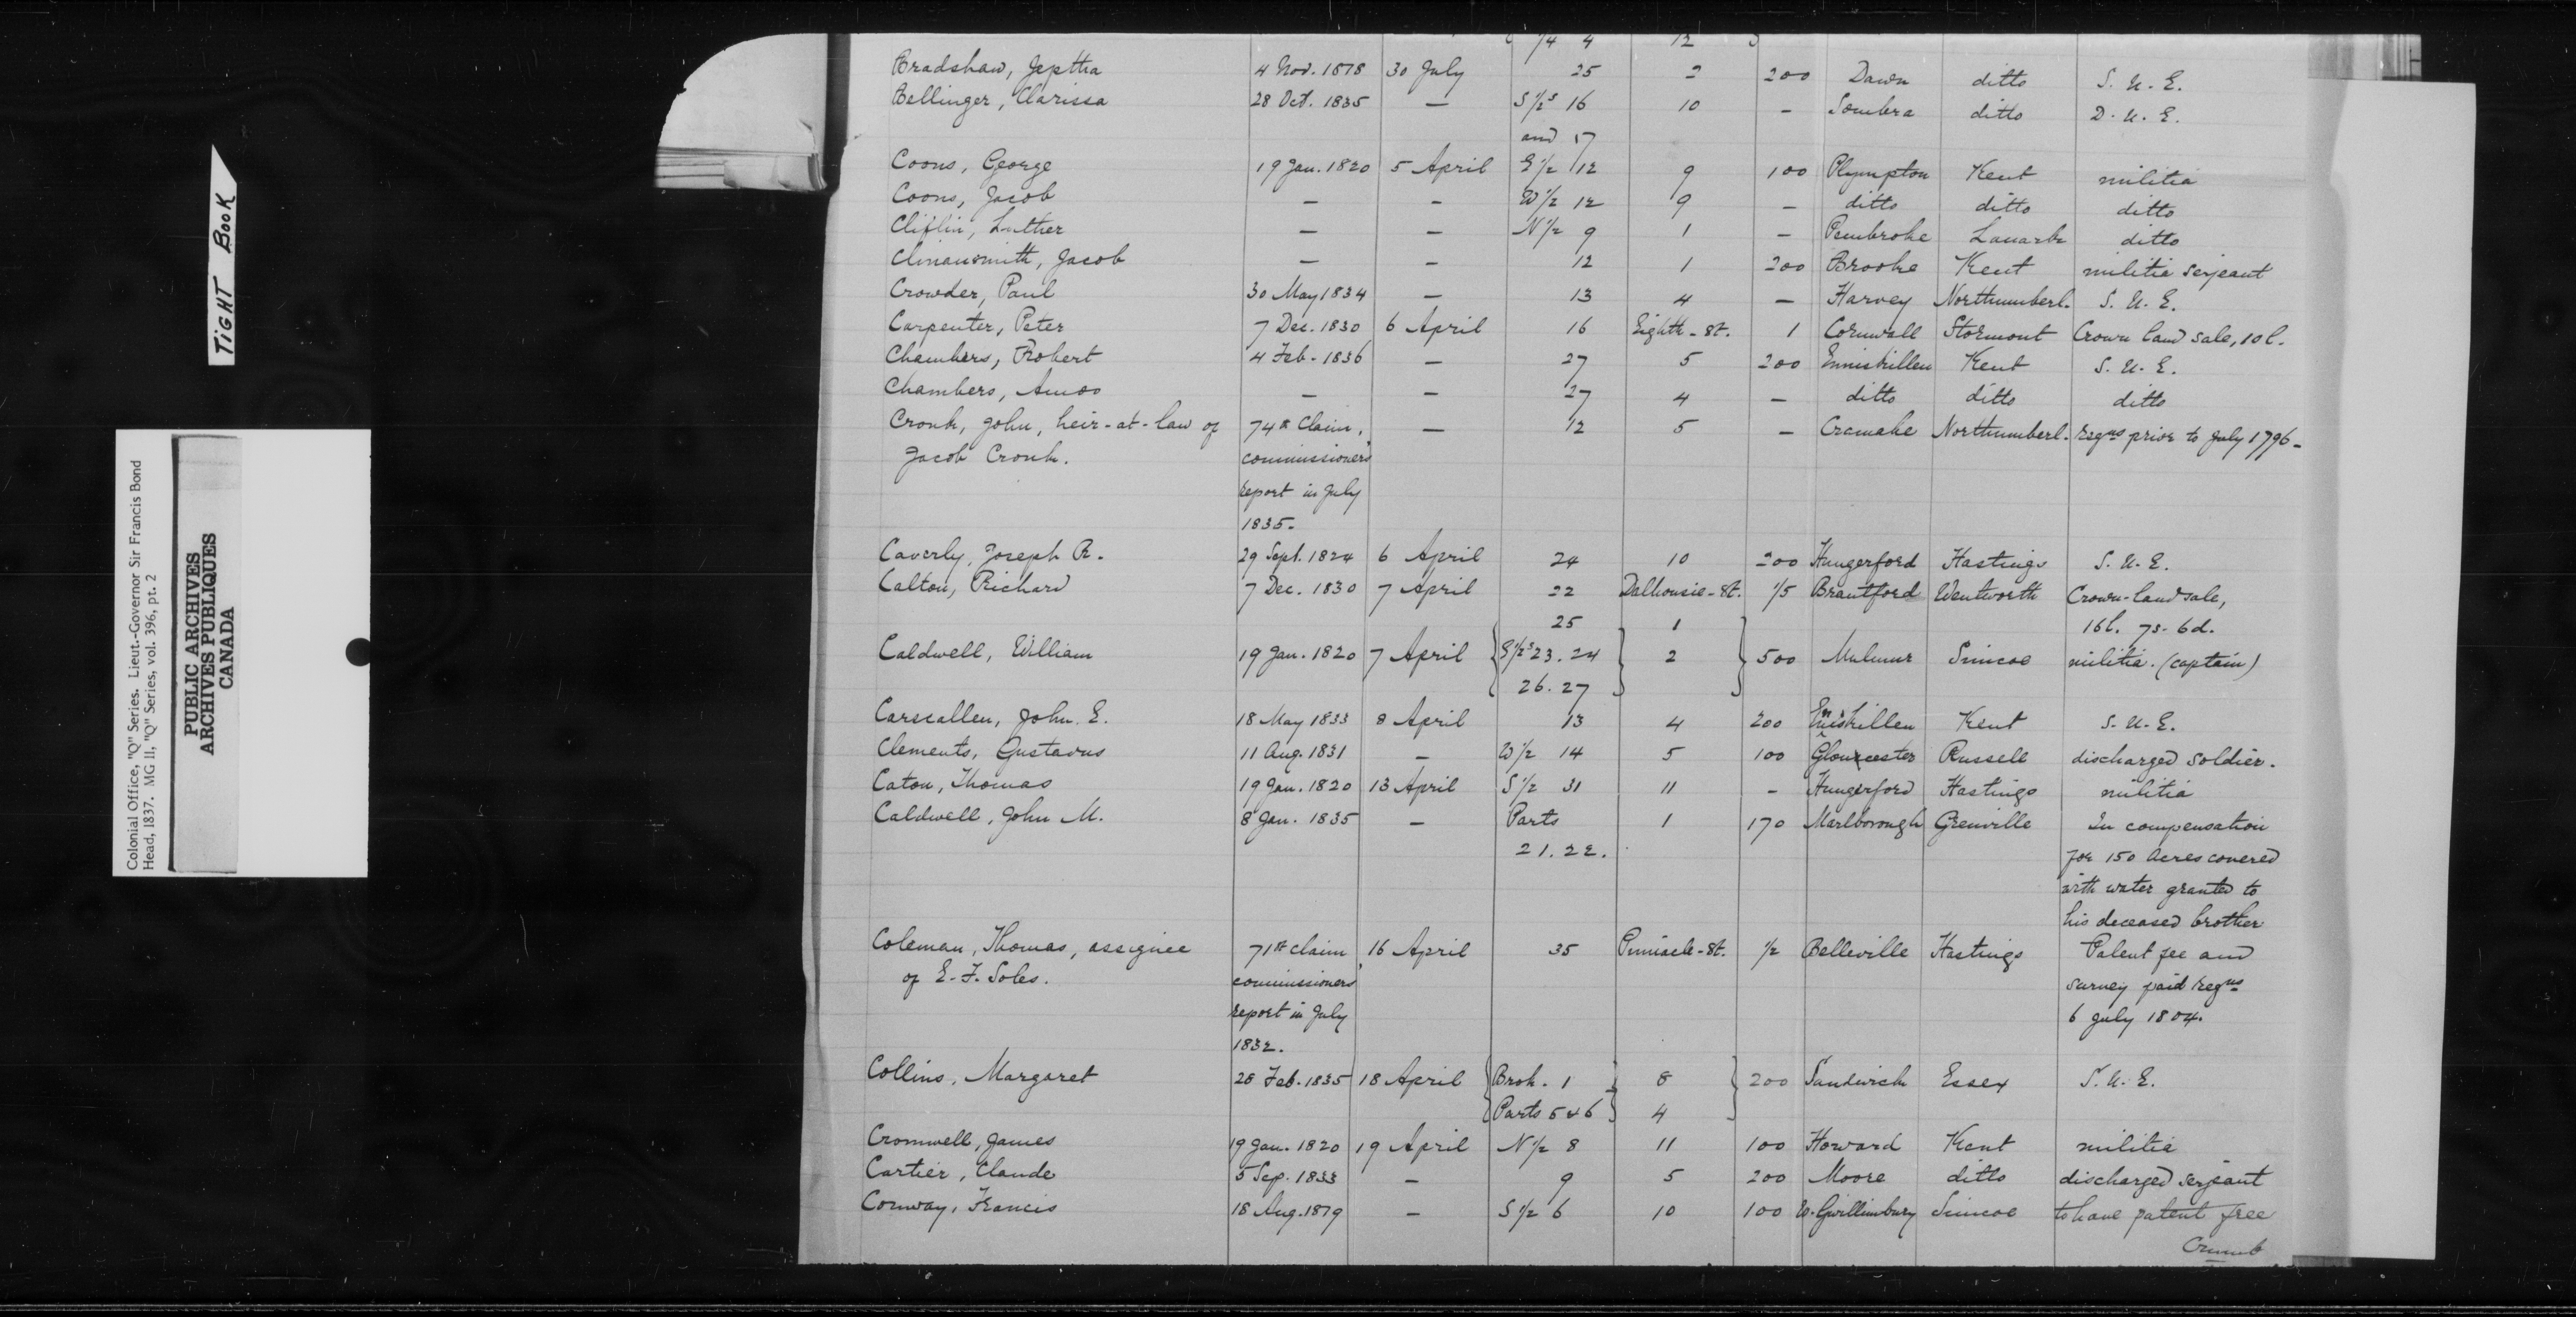 TIGHT BOOK
Colonial Office, "Q" Series. Lieut.-Governor Sir Francis Bond
Head, 1837. MG 11, "Q" Series, vol. 396, pt. 2
PUBLIC ARCHIVES
ARCHIVES PUBLIQUES
CANADA
1/4 4 12
Bradshaw, Jeptha 4 Nov. 1818 30 July 25 2 200 Dawn ditto S. U. E.
Bellinger, Clarissa 28 Oct. 1835 — S 1/2s 16 10 — Sombra ditto D. U. E.
and 17
Coons, George 19 Jan. 1820 5 April E 1/2 12 9 100 Plympton Kent militia
Coons, Jacob — — W 1/2 12 9 — ditto ditto ditto
Cliflin, Luther — — N 1/2 9 1 — Pembroke Lanark ditto
Clinansmith, Jacob — — 12 1 200 Brooke Kent militia serjeant
Crowder, Paul 30 May 1834 — 13 4 — Harvey Northumberl. S. U. E.
Carpenter, Peter 7 Dec. 1830 6 April 16 Eighth-St. 1 Cornwall Stormont Crown land sale, 10 l.
Chambers, Robert 4 Feb. 1836 — 27 5 200 Enniskillen Kent S. U. E.
Chambers, Amos — — 27 4 — ditto ditto ditto
Cronk, John, heir-at-law of 74th Claim, — 12 5 — Cramahe Northumberl. regns prior to July 1796-
Jacob Cronk. commissioners'
report in July
1835.
Caverly, Joseph R. 29 Sept. 1824 6 April 24 10 200 Hungerford Hastings S. U. E.
Calton, Richard 7 Dec. 1830 7 April 22 Dalhousie-St. 1/5 Brantford Wentworth Crown-land sale,
25 1 16 l. 7s. 6d.
Caldwell, William 19 Jan. 1820 7 April E 1/2s 23. 24 2 500 Mulmur Simcoe militia. (captain)
26. 27
Carscallen, John E. 18 May 1833 8 April 13 4 200 Enniskillen Kent S. U. E.
Clements, Gustavus 11 Aug. 1831 — W 1/2 14 5 100 Gloucester Russell discharged soldier.
Caton, Thomas 19 Jan. 1820 13 April S 1/2 31 11 — Hungerford Hastings militia
Caldwell, John M. 8 Jan. 1835 — Parts 1 170 Marlborough Grenville In compensation
21. 22. for 150 acres covered
with water granted to
his deceased brother
Coleman, Thomas, assignee 71st claim 16 April 35 Pinnacle-St. 1/2 Belleville Hastings Patent fee and
of E. F. Soles. commissioners' survey paid regns
report in July 6 July 1804.
1832.
Collins, Margaret 28 Feb. 1835 18 April Brok. 1 8 200 Sandwich Essex S. U. E.
Parts 5 & 6 4
Cromwell, James 19 Jan. 1820 19 April N 1/2 8 11 100 Howard Kent militia
Cartier, Claude 5 Sep. 1833 — 9 5 200 Moore ditto discharged serjeant
Conway, Francis 18 Aug. 1819 — S 1/2 6 10 100 W. Gwillimbury Simcoe to have patent free